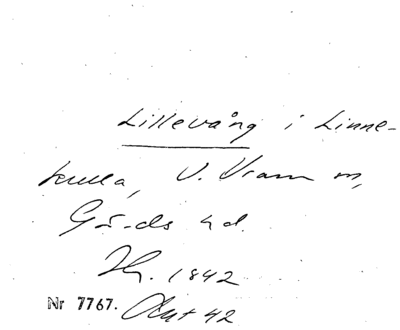 Lillevång i Linne-
kulla, V. Vram sn,
Gärds hd.
Hy. 1842
Nr 7767. Akt 42